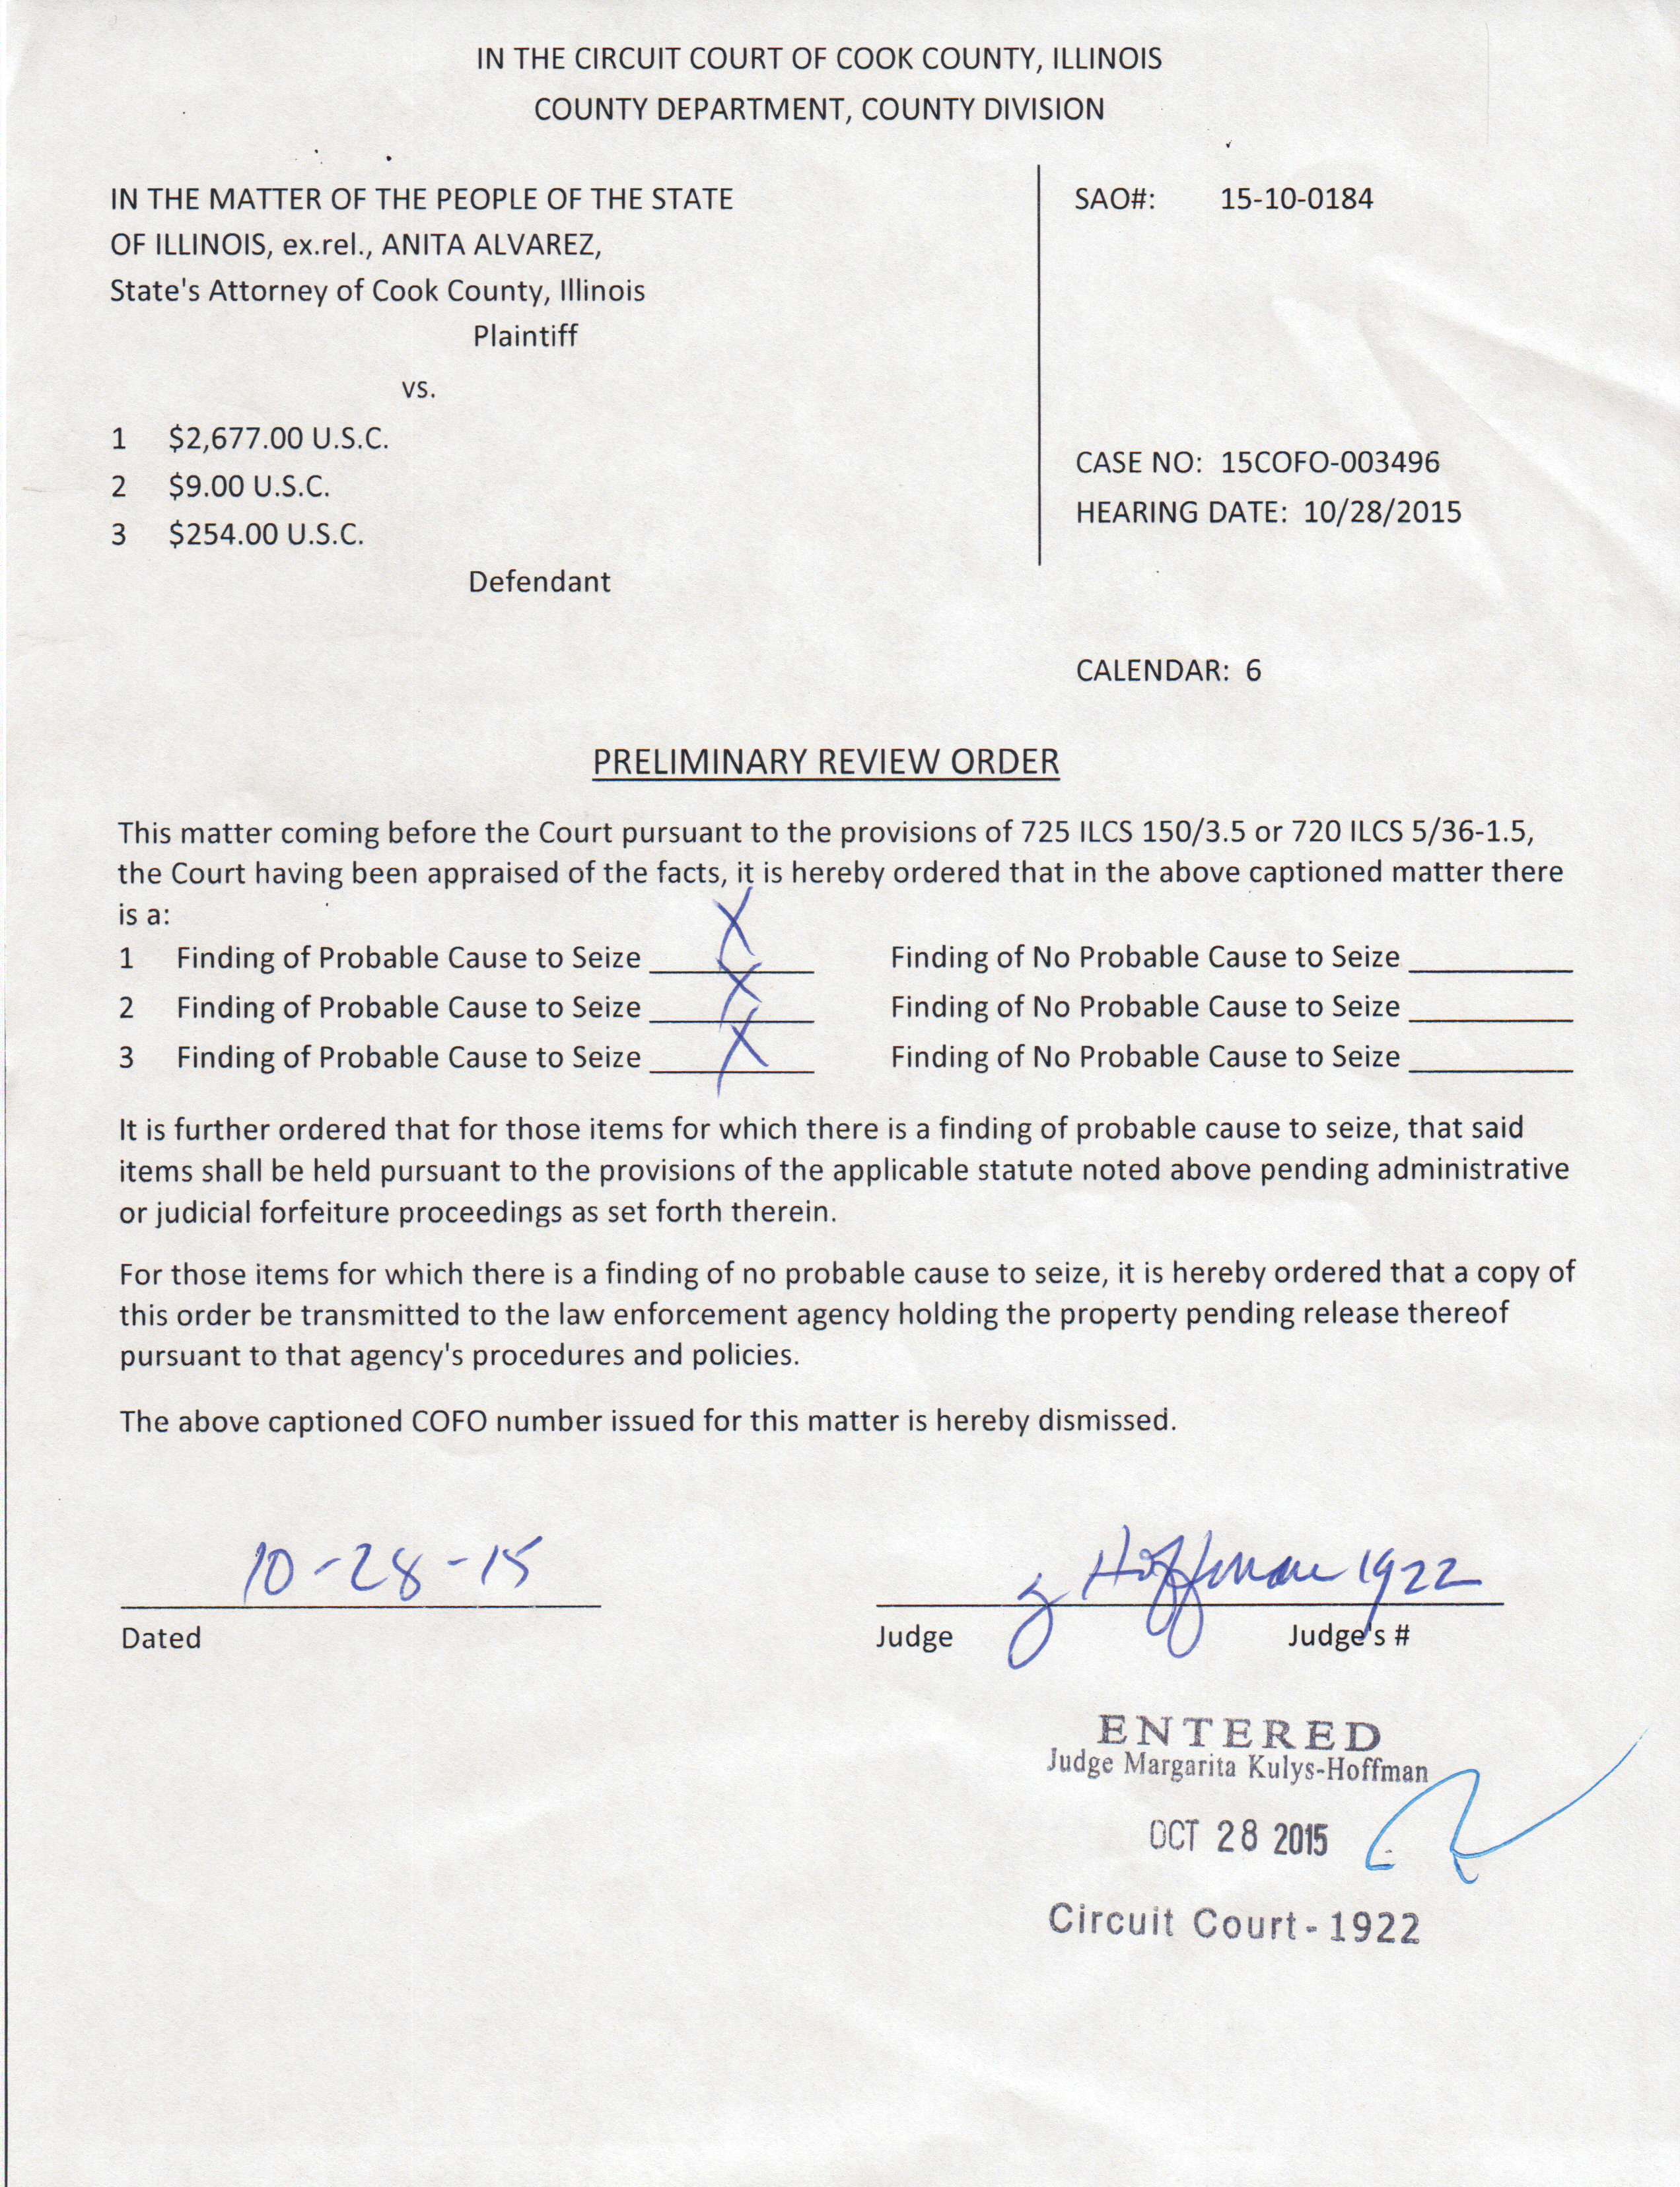 IN THE CIRCUIT COURT OF COOK COUNTY, ILLINOIS
COUNTY DEPARTMENT, COUNTY DIVISION
IN THE MATTER OF THE PEOPLE OF THE STATE
OF ILLINOIS, ex.rel., ANITA ALVAREZ,
State's Attorney of Cook County, Illinois
Plaintiff
vs.
1 $2,677.00 U.S.C.
2 $9.00 U.S.C.
3 $254.00 U.S.C.
Defendant
SAO#: 15-10-0184
CASE NO: 15COFO-003496
HEARING DATE: 10/28/2015
CALENDAR: 6
PRELIMINARY REVIEW ORDER
This matter coming before the Court pursuant to the provisions of 725 ILCS 150/3.5 or 720 ILCS 5/36-1.5,
the Court having been appraised of the facts, it is hereby ordered that in the above captioned matter there
is a:
1 Finding of Probable Cause to Seize X Finding of No Probable Cause to Seize
2 Finding of Probable Cause to Seize X Finding of No Probable Cause to Seize
3 Finding of Probable Cause to Seize X Finding of No Probable Cause to Seize
It is further ordered that for those items for which there is a finding of probable cause to seize, that said
items shall be held pursuant to the provisions of the applicable statute noted above pending administrative
or judicial forfeiture proceedings as set forth therein.
For those items for which there is a finding of no probable cause to seize, it is hereby ordered that a copy of
this order be transmitted to the law enforcement agency holding the property pending release thereof
pursuant to that agency's procedures and policies.
The above captioned COFO number issued for this matter is hereby dismissed.
10-28-15
Dated
Hoffman 1922
Judge Judge's #
ENTERED
Judge Margarita Kulys-Hoffman
OCT 28 2015
Circuit Court - 1922